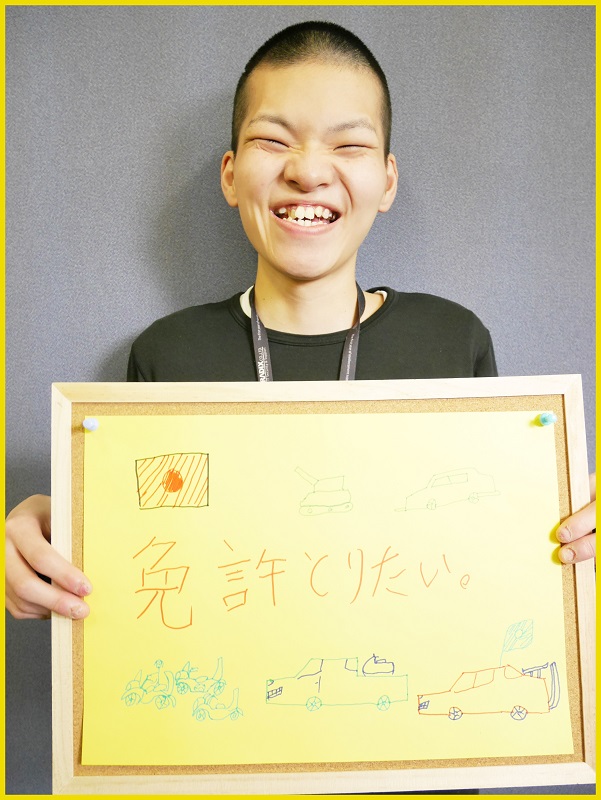 RADIX
免許とりたい。